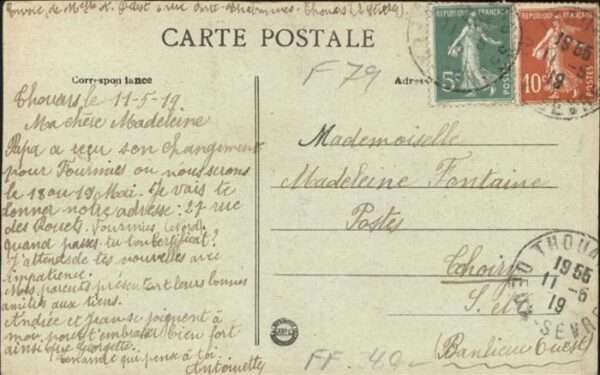 Envoi de Melle A.
Thouars (2 Sèvres)
CARTE POSTALE
Correspondance
Adres
F 79
REPUBLIQUE FRANÇAISE
5c
POSTES
REPUBLIQUE FRANÇAISE
10c
POSTES
1955
11-5
19
Thouars, le 11-5-19
Ma chère Madeleine
Papa a reçu son changement
pour Fourmies ou nous serons
le 18 ou 19 Mai. Je vais te
donner notre adresse: 27 rue
des Rouets. Fourmies (Nord).
Quand passes-tu ton Certificat?
J'attends de tes nouvelles avec
impatience.
Mes parents présentent leurs bonnes
amitiés aux tiens.
Andrée et Jean se joignent à
moi pour t'embrasser bien fort
ainsi que Georgette.
Ton amie qui pense à toi.
Antoinette
Mademoiselle
Madeleine Fontaine
Postes
Thoiry
S. et O.
(Banlieue Ouest)
THOUARS
1955
11-5
19
DEUX-SEVRES
FF. 40-